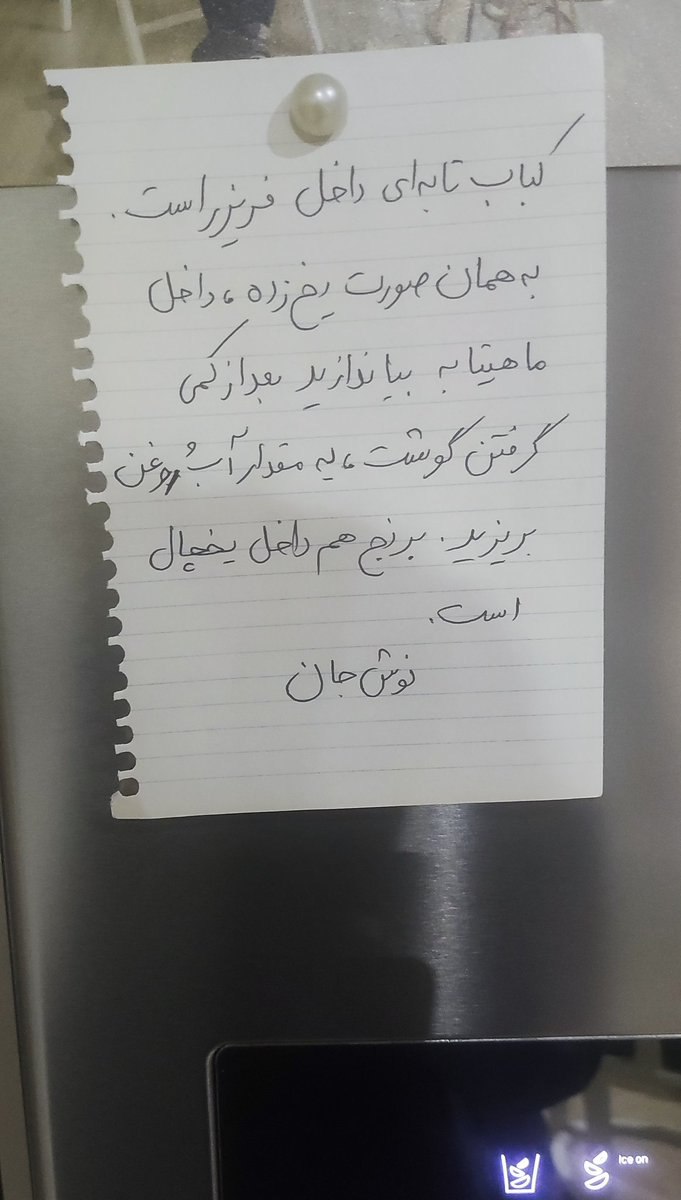 کباب تابه‌ای داخل فریزر است.
به همان صورت یخ زده، داخل
ماهیتابه بیاندازید بعد از کمی
گرفتن گوشت، یه مقدار آبُ روغن
بریزید. برنج هم داخل یخچال
است.
نوش جان
Ice on